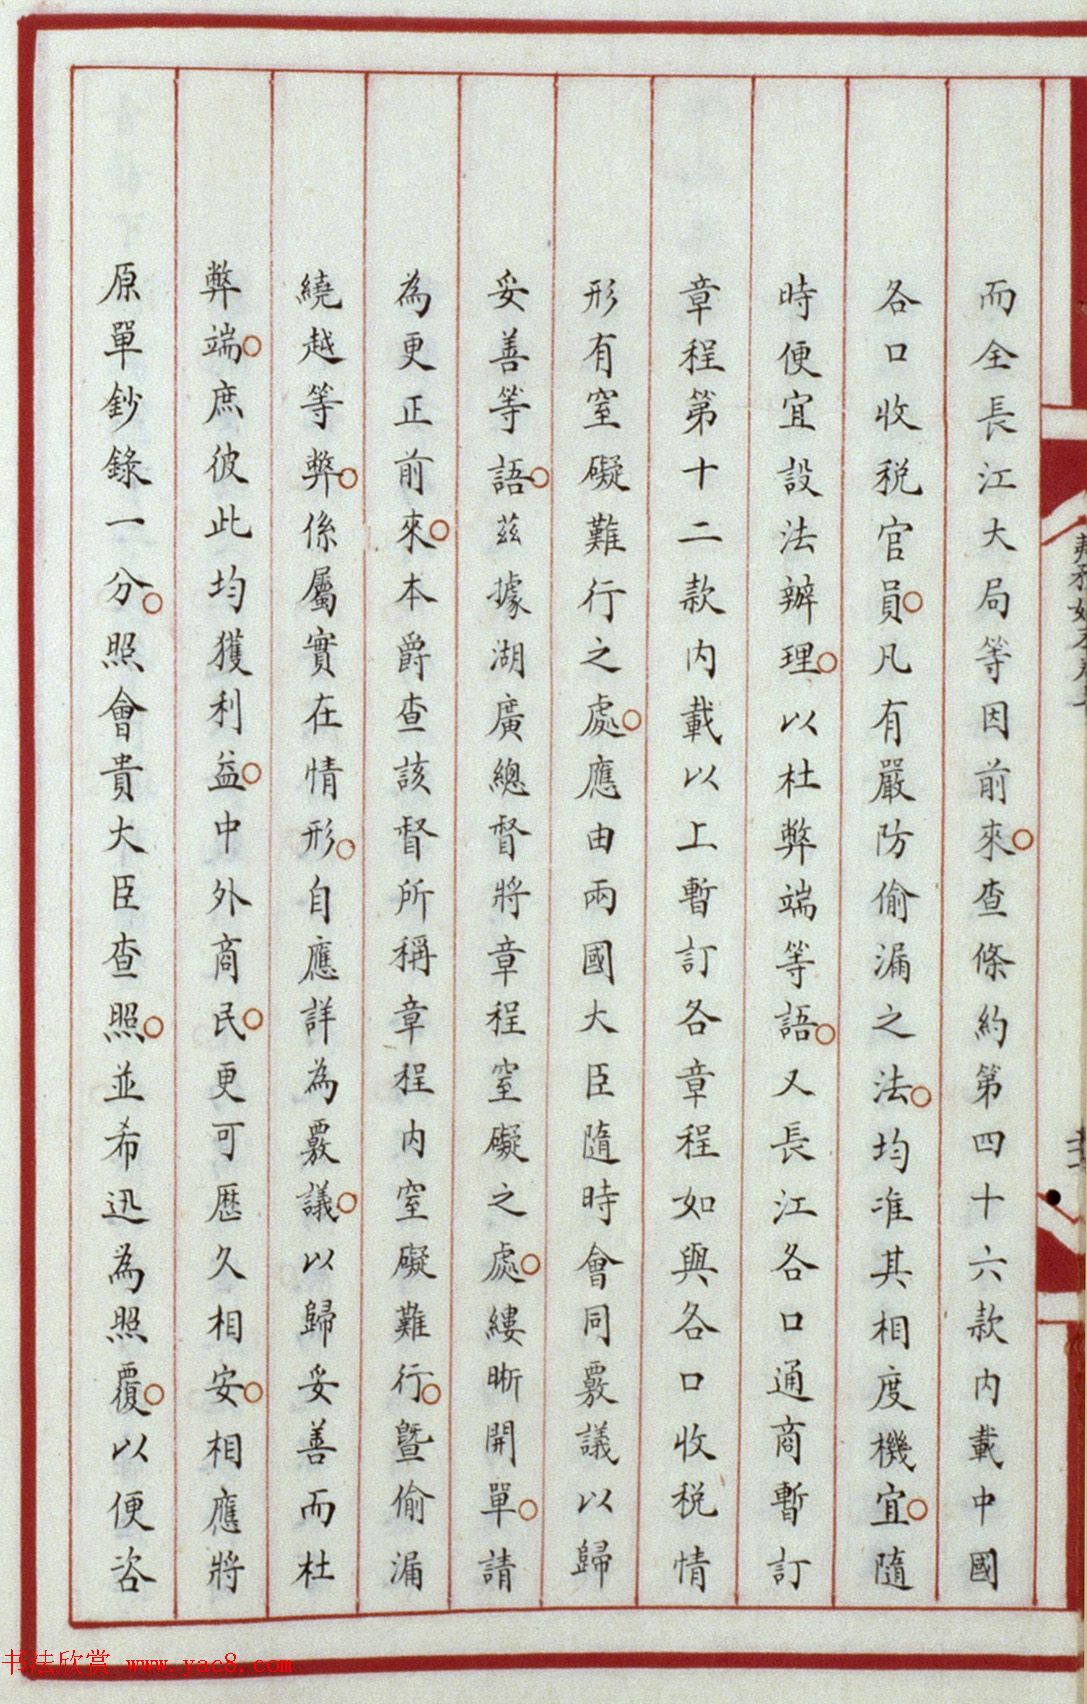 而全長江大局等因前來○查條約第四十六款內載中國
各口收稅官員○凡有嚴防偷漏之法○均准其相度機宜○隨
時便宜設法辦理○以杜弊端等語○又長江各口通商暫訂
章程第十二款內載以上暫訂各章程如與各口收稅情
形有窒礙難行之處○應由兩國大臣隨時會同覈議以歸
妥善等語○茲據湖廣總督將章程窒礙之處○縷晰開單○請
為更正前來○本爵查該督所稱章程內窒礙難行○暨偷漏
繞越等弊○係屬實在情形○自應詳為覈議○以歸妥善而杜
弊端○庶彼此均獲利益○中外商民○更可歷久相安○相應將
原單鈔錄一分○照會貴大臣查照○並希迅為照覆○以便咨
书法欣赏 www.yac8.com